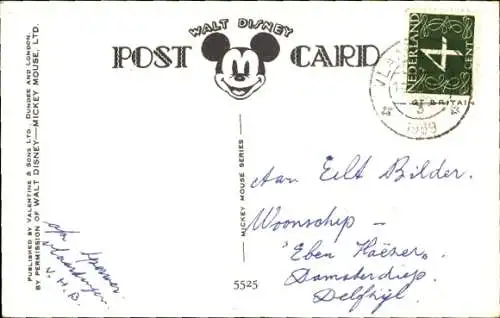 WALT DISNEY
POST CARD
NEDERLAND
4
CENT
GT BRITAI
VLA
PUBLISHED BY VALENTINE & SONS LTD. DUNDEE AND LONDON.
BY PERMISSION OF WALT DISNEY—MICKEY MOUSE, LTD.
MICKEY MOUSE SERIES
5525
Aan Eilt Bilder.
Woonschip –
"Eben Haëzer"
Damsterdiep.
Delfzijl
Vlaardingen